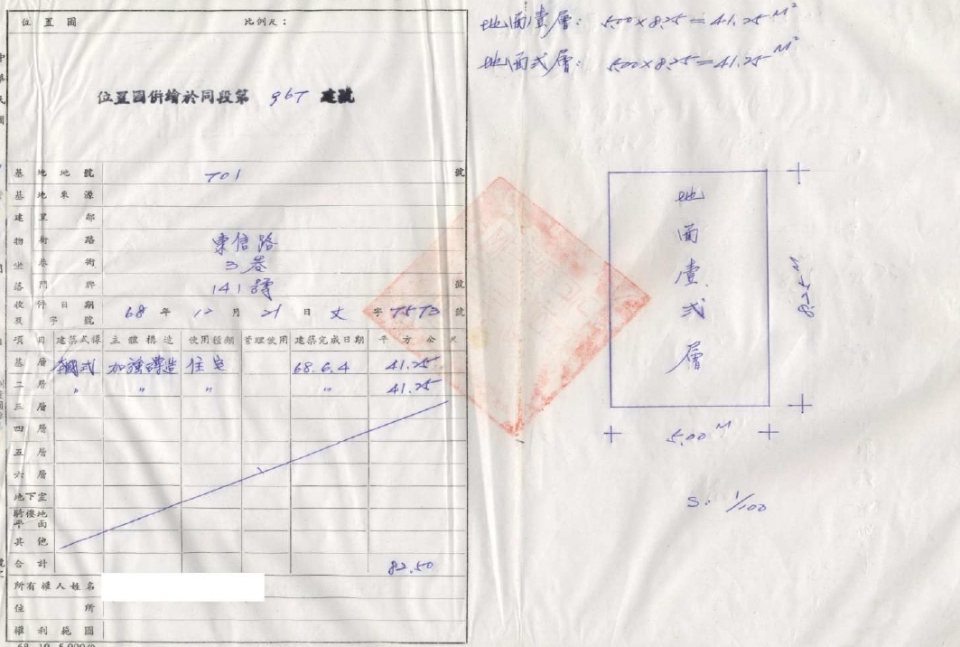 位置圖 比例尺:
位置圖併繪於同段第 967 建號
基地地號 701 號
基地來源
建 里鄰
物 街路 東信路
坐 巷衖 3巷
落 門牌 141 號
收件日期 68年12月21日
及字號 字7573號
項目 建築式樣 主體構造 使用種類 管理使用 建築完成日期 平方公尺
基層 加強磚造 住宅 68.6.4 41.25
二層 〃 〃 〃 〃 41.25
三層
四層
五層
六層
地下室
騎樓地平面
其他
合計 82.50
所有權人姓名
住所
權利範圍
地面壹層: 5.00×8.25=41.25 M²
地面弍層: 5.00×8.25=41.25 M²
地面壹弍層
8.25 M
5.00 M
S: 1/100